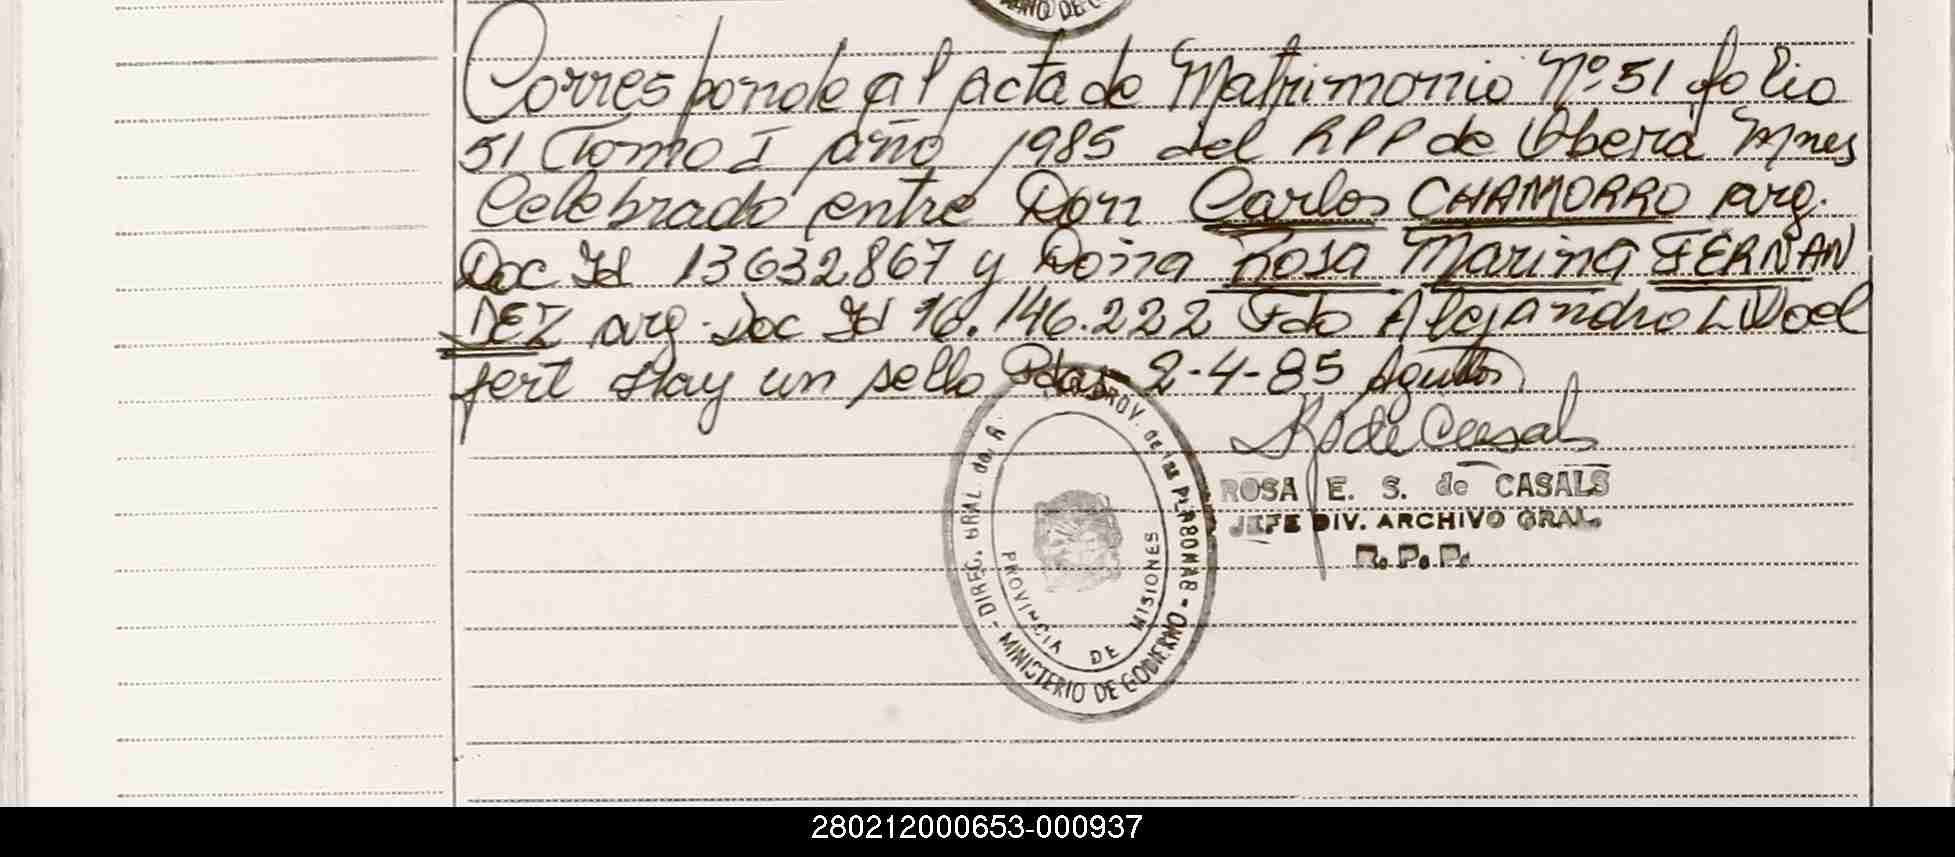 Corresponde al acta de Matrimonio Nº 51 folio
51 Tomo I año 1985 del RPP de Oberá Mnes
Celebrado entre Don Carlos CHAMORRO arg.
Doc Id 13632867 y Doña Rosa Marina FERNAN
DEZ arg. Doc Id 16.146.222 Fdo Alejandro L Woel
fert Hay un sello Pdas 2-4-85
ROSA E. S. de CASALS
JEFE DIV. ARCHIVO GRAL.
R. P. P.
DIREC. GRAL. de R. PROV. de las PERSONAS - MINISTERIO DE GOBIERNO -
PROVINCIA DE MISIONES
280212000653-000937